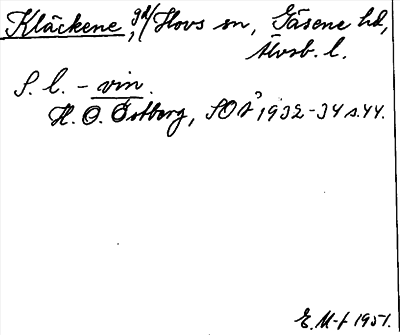 Kläckene, gd, Hovs sn, Gäsene hd,
Älvsb. l.
S. l. - vin.
H. O. Östberg, SOÅ 1932-34 s. 44.
E. M-f 1951.